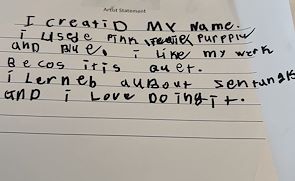 Artist Statement
I creatiD MY Name.
i usede Pink purpple
and Blue. i Like my werk
Becos itis quet.
i Lerneb aubout sentungls
and i Love Doingit.